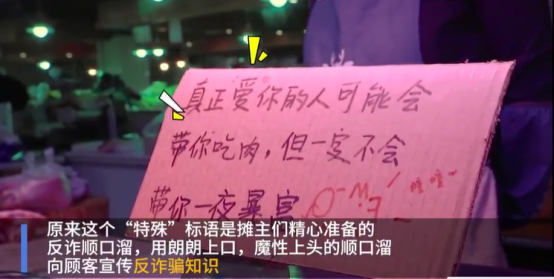 真正爱你的人可能会
带你吃肉，但一定不会
带你一夜暴富
原来这个“特殊”标语是摊主们精心准备的
反诈顺口溜，用朗朗上口，魔性上头的顺口溜
向顾客宣传反诈骗知识